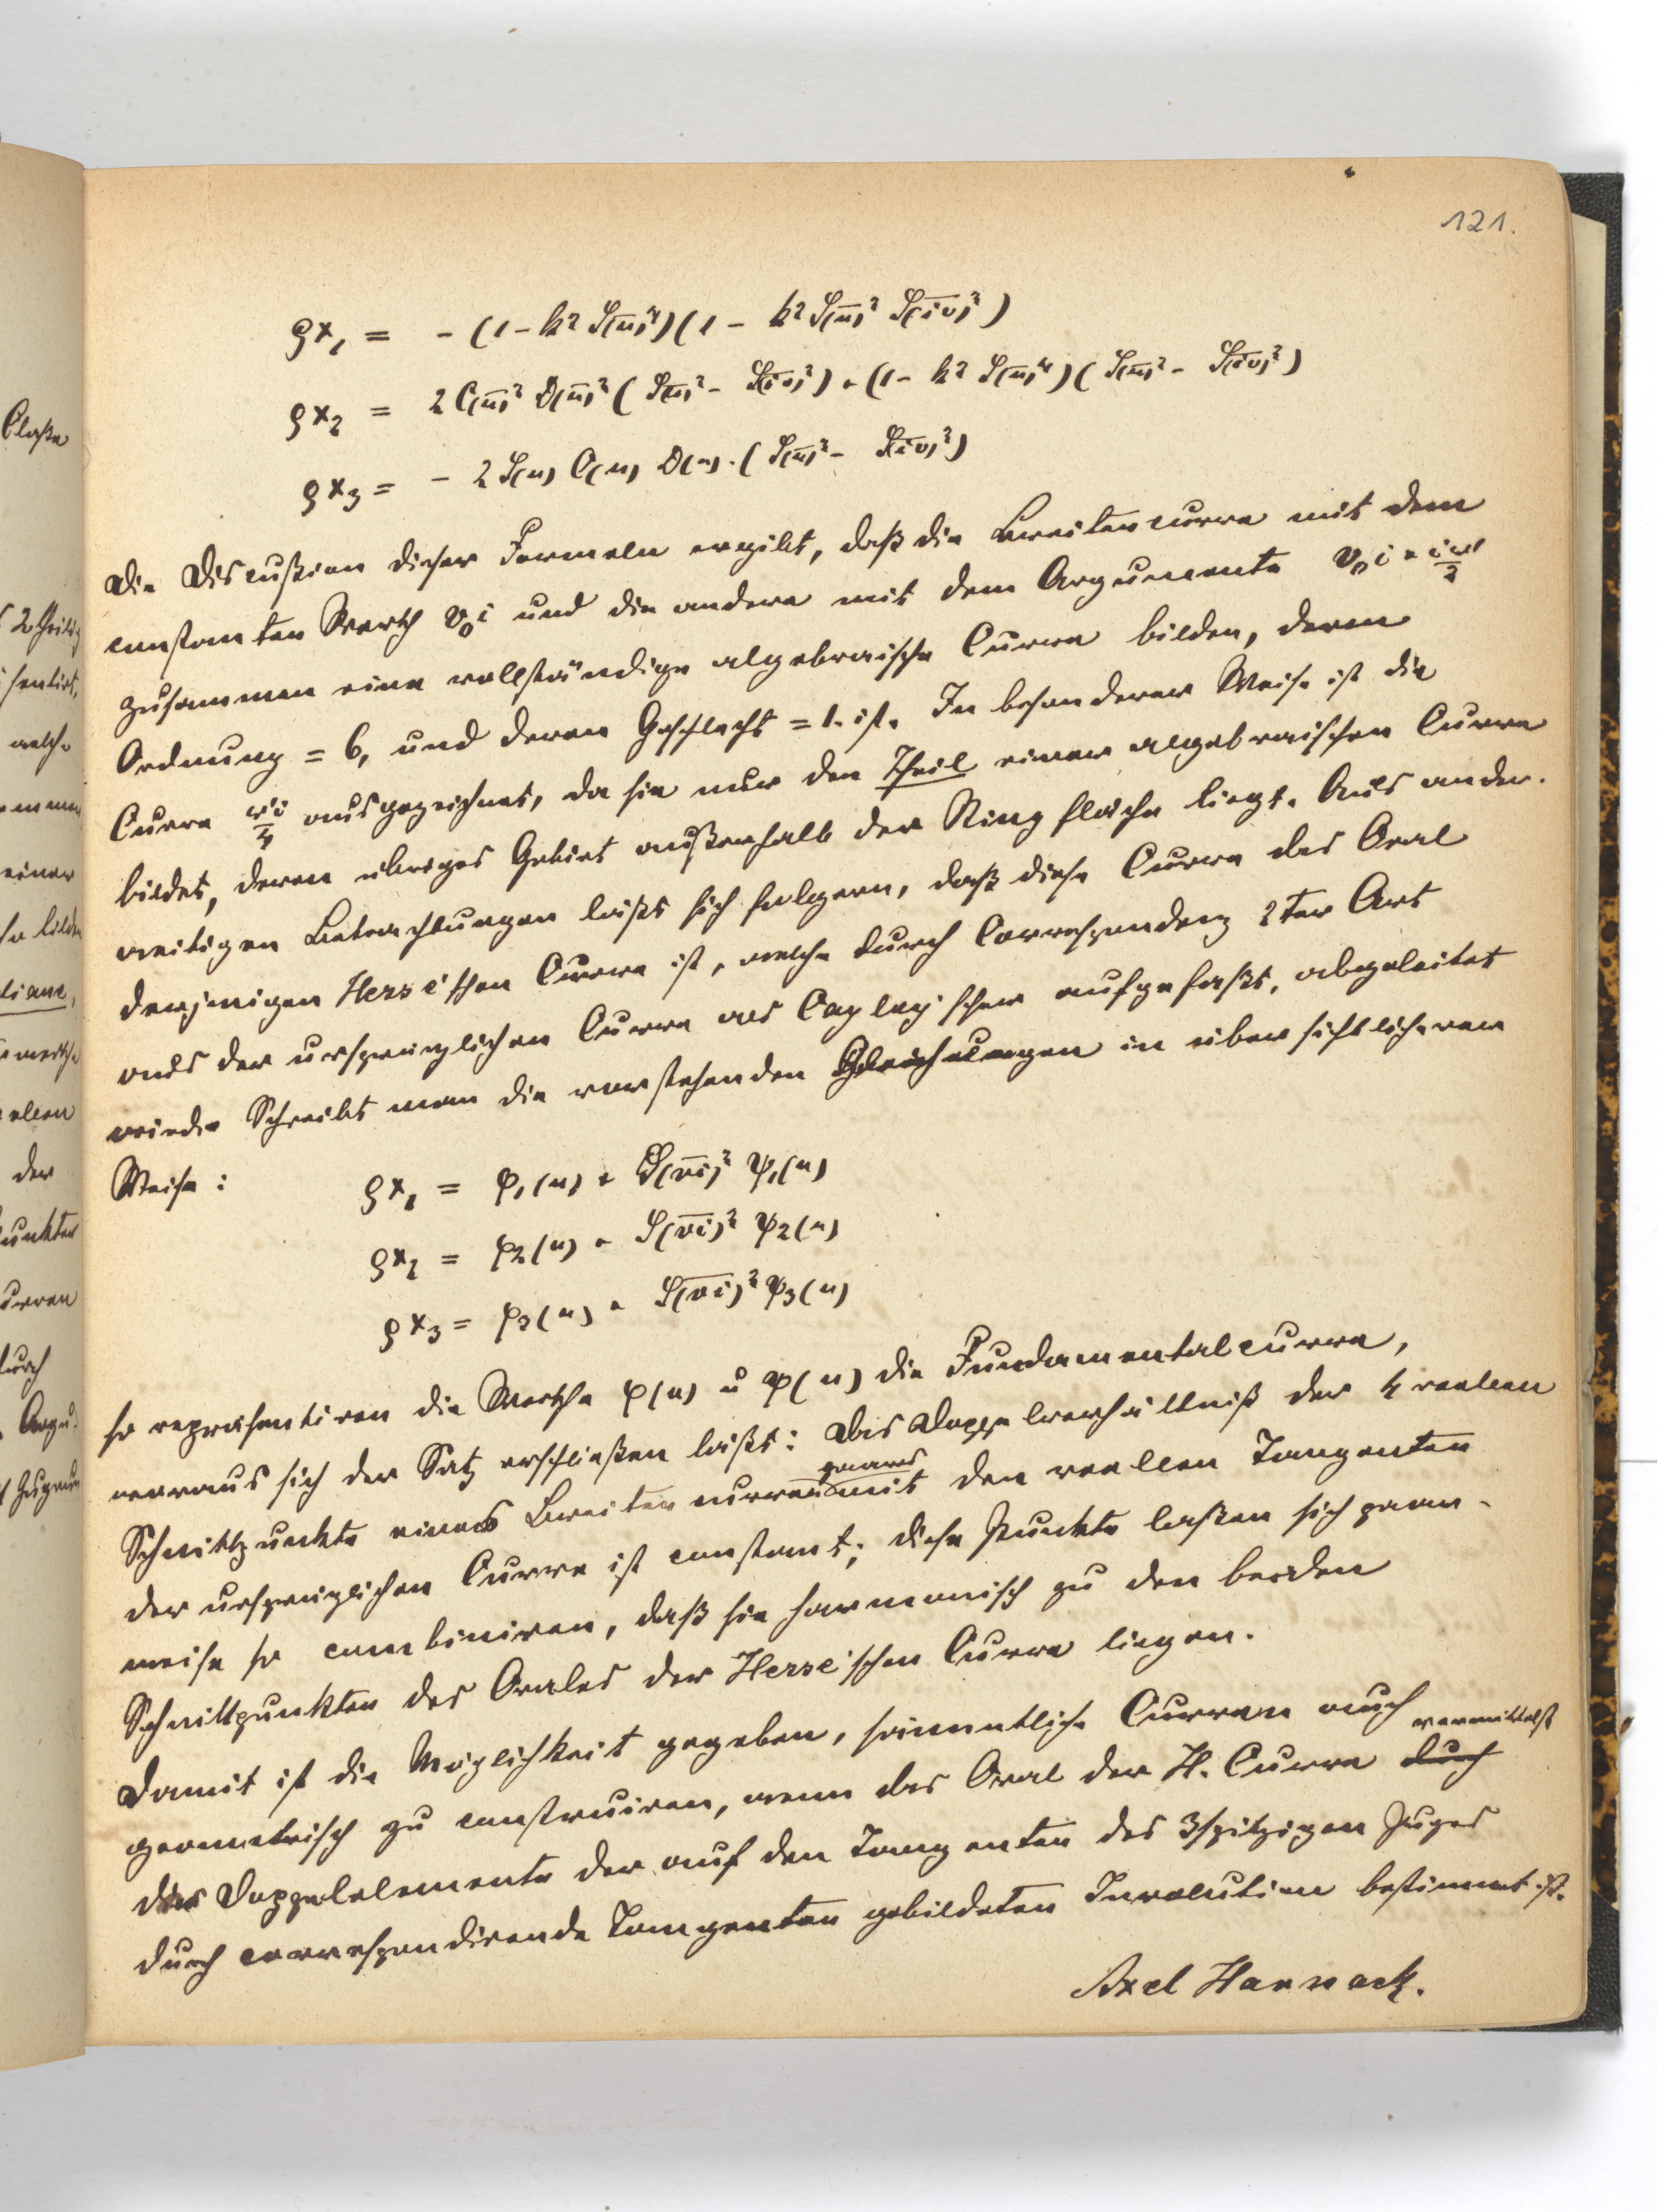 121.
ρx₁ = - (1 - k² S(u)⁴) (1 - k² S(u)² S(iv)²)
ρx₂ = 2 C(u)² D(u)² (S(u)² - S(iv)²) + (1 - k² S(u)⁴) (S(u)² - S(iv)²)
ρx₃ = - 2 S(u) C(u) D(u) · (S(u)² - S(iv)²)
Die Discußion dieser Formeln ergibt, daß die Breitencurve mit dem
constanten Werth v₀i und die andere mit dem Argumente v₀i + iω'/2
zusammen eine vollständige algebraische Curve bilden, deren
Ordnung = 6, und deren Geschlecht = 1. ist. In besonderer Weise ist die
Curve ω'i/4 ausgezeichnet, da sie nur den Theil einer algebraischen Curve
bildet, deren übriges Gebiet außerhalb der Ringfläche liegt. Aus ander-
weitigen Betrachtungen läßt sich folgern, daß diese Curve das Oval
derjenigen Hesse'schen Curve ist, welche durch Correspondenz 2ter Art
aus der ursprünglichen Curve als Cayley'scher aufgefaßt, abgeleitet
wird. Schreibt man die vorstehenden Gleichungen in übersichtlicherer
Weise:
ρx₁ = φ₁(u) + S(vi)² ψ₁(u)
ρx₂ = φ₂(u) + S(vi)² ψ₂(u)
ρx₃ = φ₃(u) + S(vi)² ψ₃(u)
so repräsentiren die Werthe φ(u) u ψ(u) die Fundamentalcurve,
woraus sich der Satz erschließen läßt: Das Doppelverhältniß der 4 reellen
Schnittpunkte eines Breitencurvenpaares mit den reellen Tangenten
der ursprünglichen Curve ist constant; diese Punkte laßen sich paar-
weise so combiniren, daß sie harmonisch zu den beiden
Schnittpunkten des Ovales der Hesse'schen Curve liegen.
Damit ist die Möglichkeit gegeben, sämmtliche Curven auch
geometrisch zu construiren, wenn das Oval der H. Curve durch vermittelst
der Doppelelemente der auf den Tangenten des 3spitzigen Zuges
durch correspondirende Tangenten gebildeten Involution bestimmt ist.
Axel Harnack.